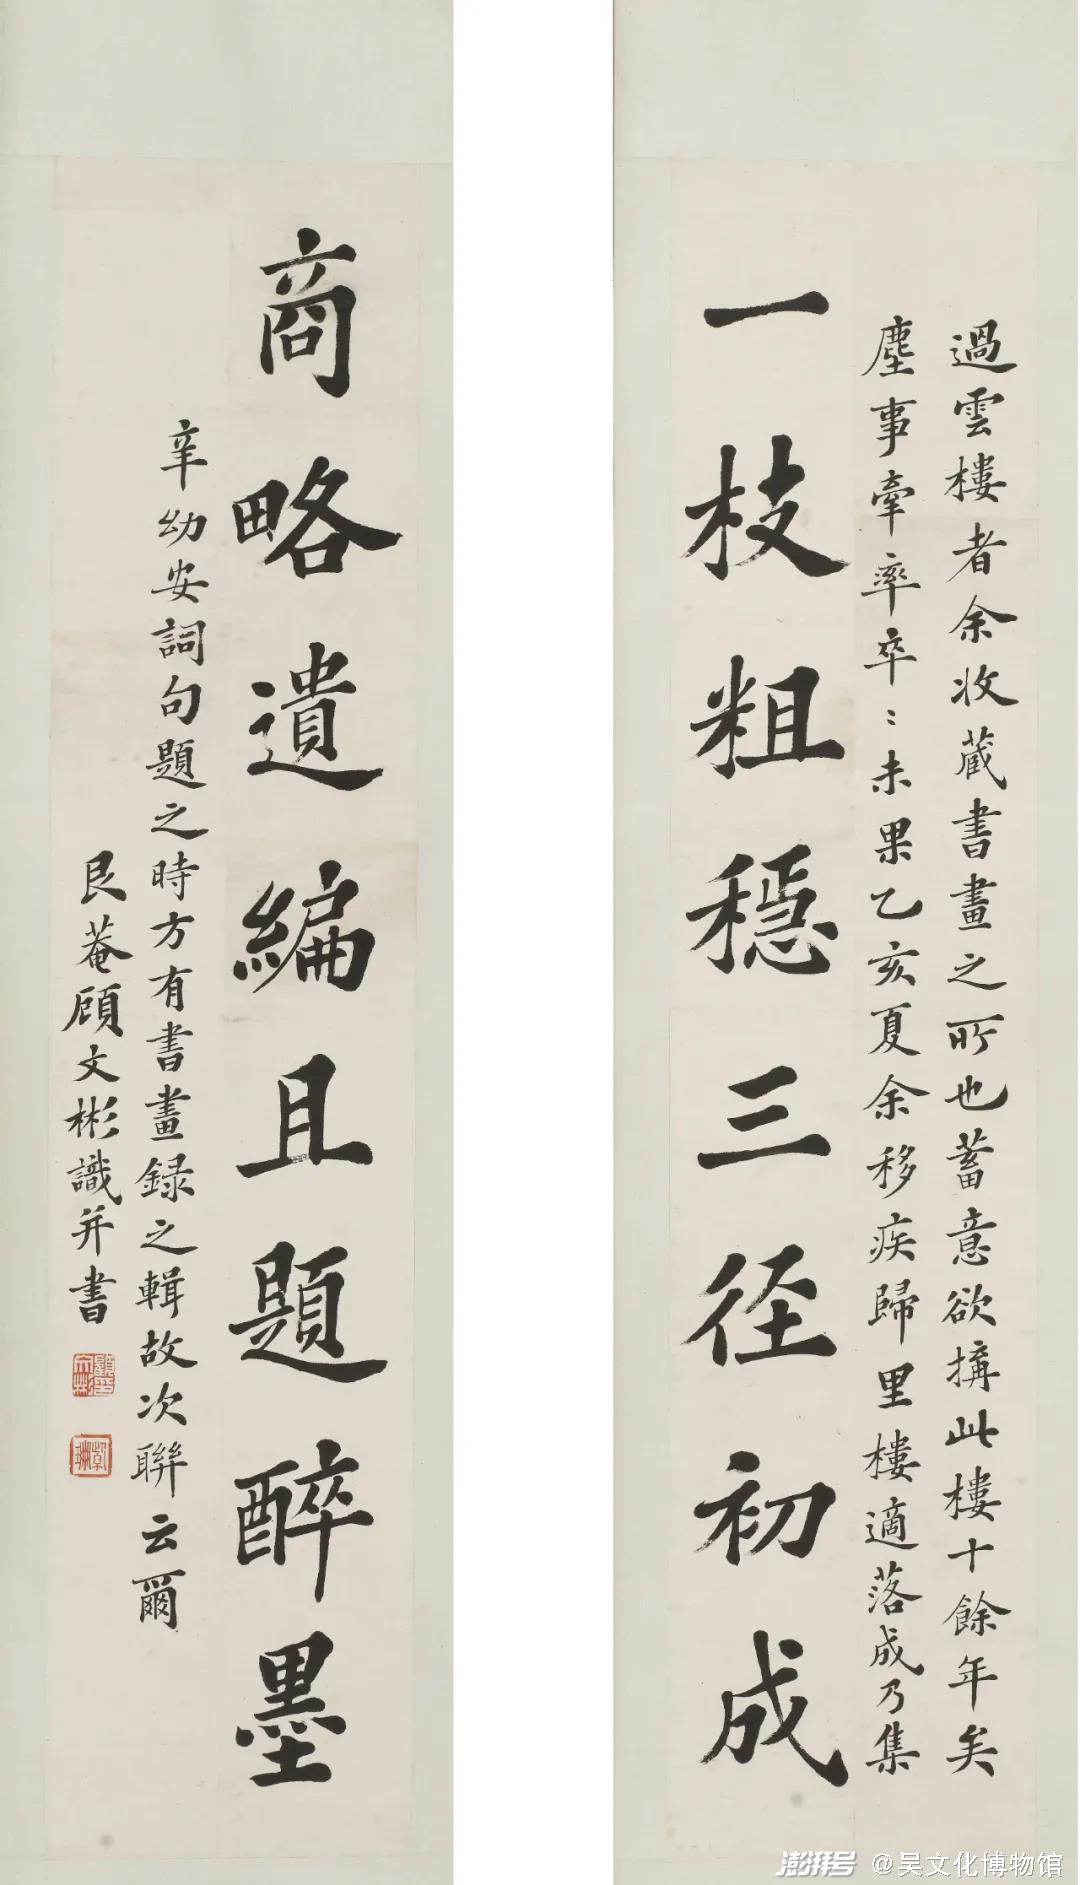 過雲樓者余收藏書畫之所也蓄意欲搆此樓十餘年矣
塵事牽率卒〻未果乙亥夏余移疾歸里樓適落成乃集
一枝粗穩三径初成
商略遺編且題醉墨
辛幼安詞句題之時方有書畫錄之輯故次聯云爾
艮菴顧文彬識并書
顧文彬印
紫珊
澎湃号 @吴文化博物馆